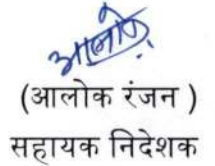 आलोक
(आलोक रंजन )
सहायक निदेशक